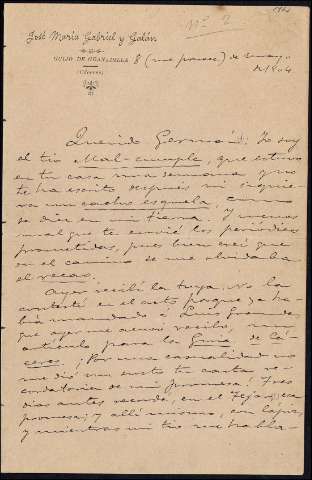 nº 2
José María Gabriel y Galán
GUIJO DE GRANADILLA
(Cáceres)
8 (me parece) de mayo
de 1904
Querido Germán: Yo soy
el tío Mal-cumple, que estuvo
en tu casa una semana y no
te ha escrito después ni siquie-
ra una cacho esquela, como
se dice en mi tierra. Y menos
mal que te envié los periódicos
prometidos, pues bien creí que
en el camino se me olvidaba
el recao.
Ayer recibí la tuya. No la
contesté en el acto porque ya ha-
bía mandado á Luis Grande,
que ayer me acusó recibo, un
artículo para la Guía de Cá-
ceres. ¡Por una casualidad no
me dió un susto tu carta re-
cordatoria de mi promesa! Tres
días antes recordé, en el Tejar, esa
promesa; y allí mismo, con lápiz,
y mientras mi tío me habla-